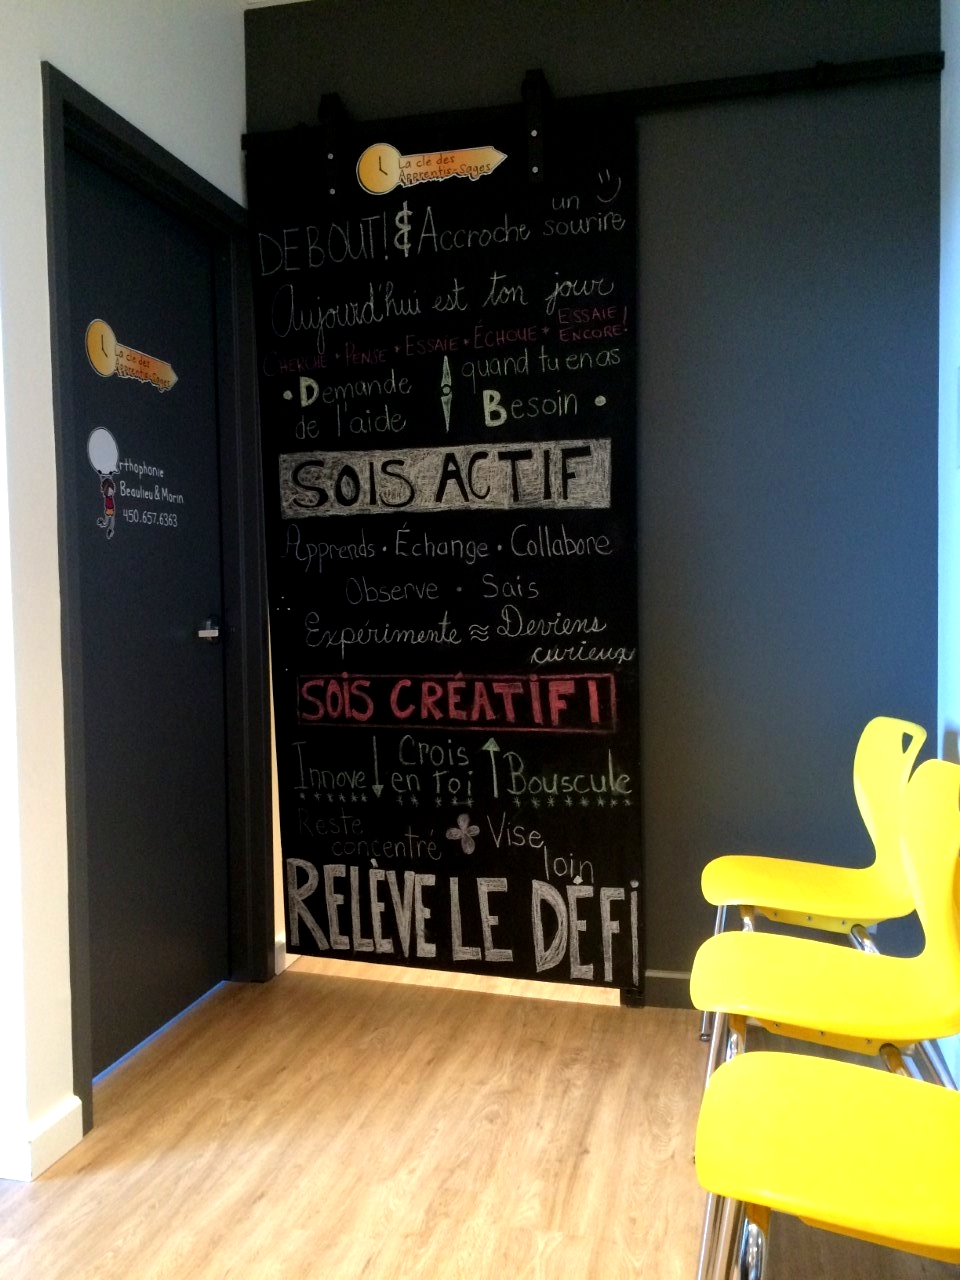 La clé des
Apprentis-Sages
DEBOUT! & Accroche un sourire
Aujourd'hui est ton jour
CHERCHE • PENSE • ESSAIE • ÉCHOUE • ESSAIE ENCORE!
• Demande de l'aide
quand tu en as Besoin •
SOIS ACTIF
Apprends • Échange • Collabore
Observe • Sais
Expérimente ≈ Deviens
curieux
SOIS CRÉATIF!
Innove ↓ Crois en Toi ↑ Bouscule
Reste concentré
Vise loin
RELÈVE LE DÉFI
La clé des
Apprentis-Sages
Orthophonie
Beaulieu & Morin
450.657.6363